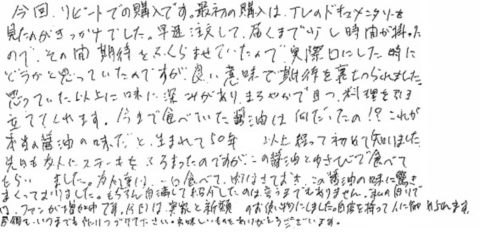 今回、リピートでの購入です。最初の購入は、TVのドキュメンタリーを
見たのがきっかけでした。早速注文して、届くまで少し時間が掛った
ので、その間期待をふくらませていたんで、実際口にした時に
どうかと思っていたんですが、良い意味で期待を裏切られました。
思っていた以上に味に深みがあり、まろやかで且つ、料理を引き
立ててくれます。今まで食べていた醤油は何だったの!?これが
本当の醤油の味だと、生まれて50年 以上経って初めて知りました。
先日も友人にステーキをふるまったのですが、この醤油とわさびで食べて
もらいました。友人達は、一口食べて、肉はさておき、この醤油の味に驚き
まくっておりました。もちろん自慢してお分けしたのは言うまでもありません。私の回りで
は、ファンが増加中です。今回は実家と親類 のお使い物にしました。自信を持って人に
いつまでも作りつづけて下さい。美味しいものをありがとうございます。